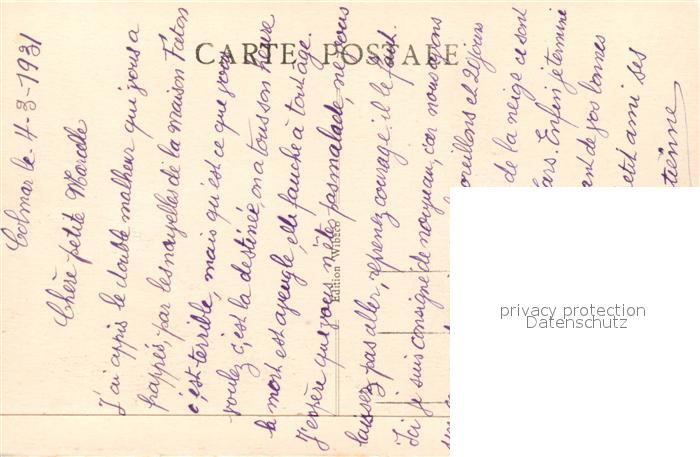 CARTE POSTALE
Edition Wibèce
Colmar le 4-3-1931
Chère petite Marcelle
J'ai appis le double malheur qui vous a
frappés, par les nouvelles de la maison Faton
c'est terrible, mais qu'est ce que vous
voulez c'est la destinée, on a tous son heure
la mort est aveugle, elle fauche à tout âge.
J'espère que vous n'êtes pas malade, ne vous
laissez pas aller, reprenez courage il le faut.
Ici je suis consigné de nouveau, car nous avons
et 20 jours
de la neige ce sont
ars. Enfin je termine
ant de vos bonnes
et ami ses
tienne
privacy protection
Datenschutz